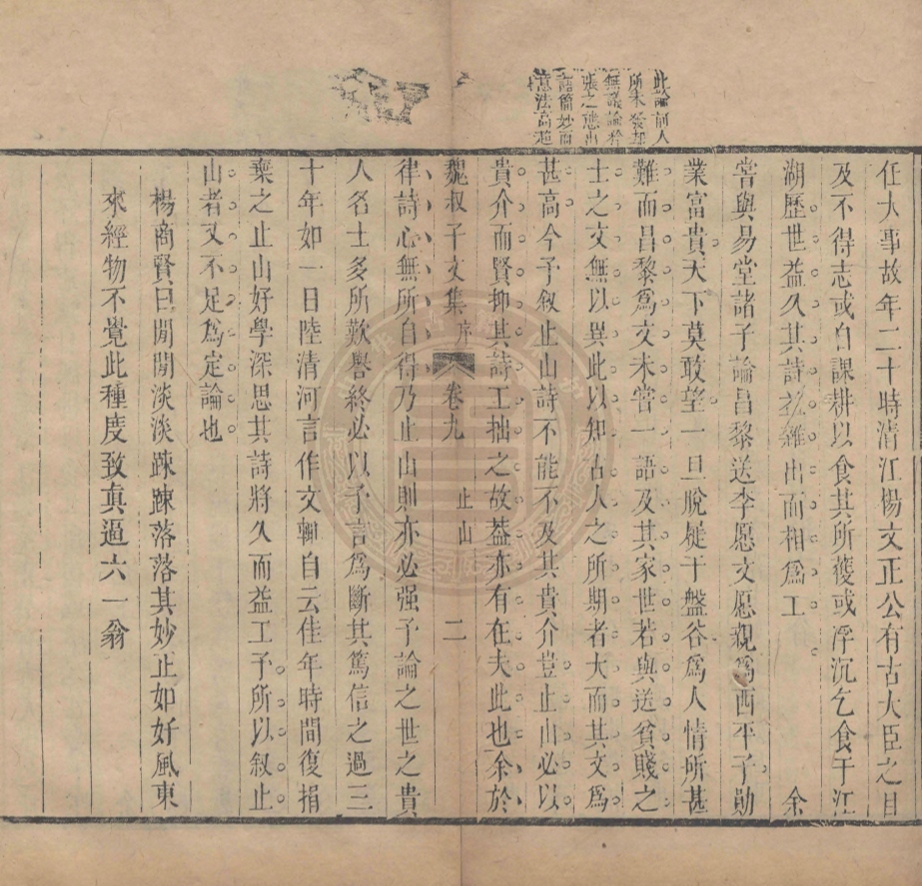 此論前人
所未發却
無議論矜
張之態出
語簡妙而
意法高超
任大事故年二十時清江楊文正公有古大臣之目
及不得志或自課耕以食其所獲或浮沉乞食于江
湖歷世益久其詩亦雜出而相為工　余
嘗與易堂諸子論昌黎送李愿文愿親為西平子勳
業富貴天下莫敢望一旦脫屣于盤谷為人情所甚
難而昌黎為文未嘗一語及其家世若與送貧賤之
士之文無以異此以知古人之所期者大而其文為
甚高今予叙止山詩不能不及其貴介豈止山必以
貴介而賢抑其詩工拙之故葢亦有在夫此也余於
魏叔子文集　序　卷九　止山　二
律詩心無所自得乃止山則亦必强予論之世之貴
人名士多所歎譽終必以予言爲斷其篤信之過三
十年如一日陸清河言作文輙自云佳年時間復捐
棄之止山好學深思其詩將久而益工予所以叙止
山者又不足爲定論也
楊商賢曰閒閒淡淡踈踈落落其妙正如好風東
來經物不覺此種度致真逼六一翁